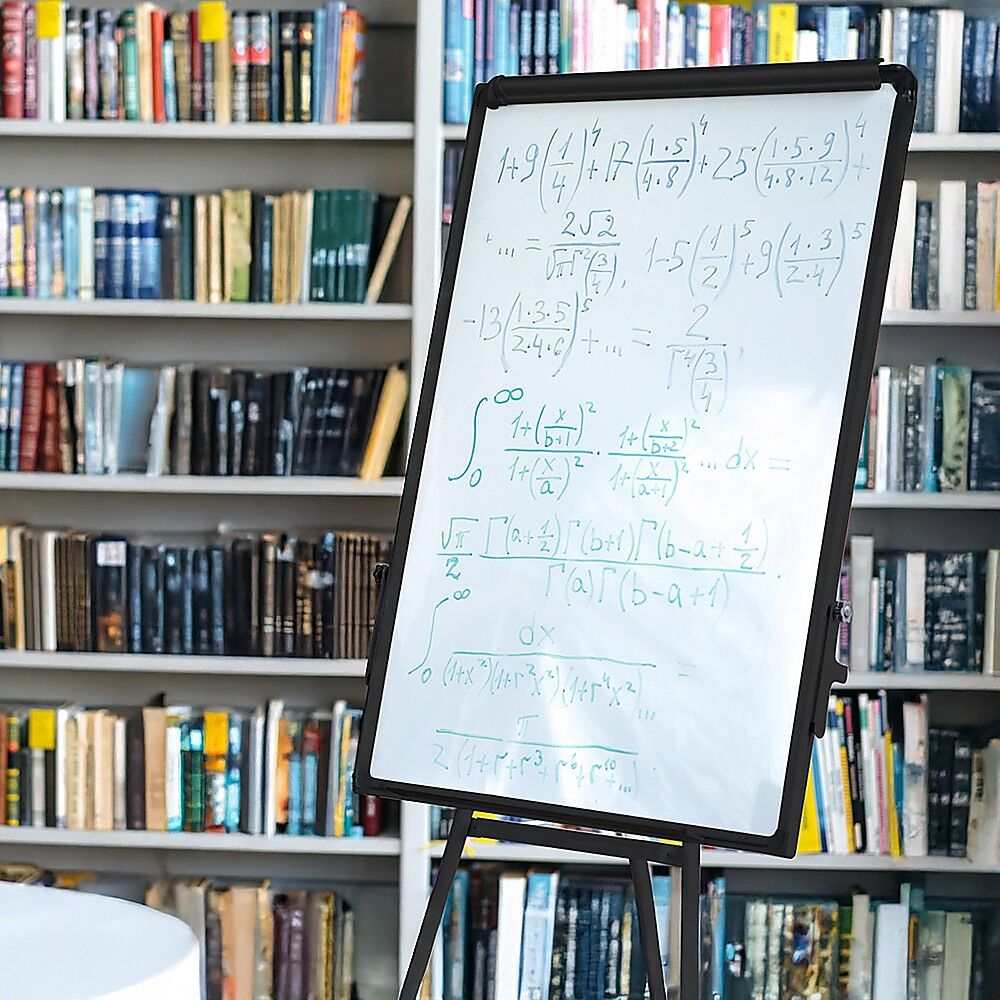 1+9(1/4)^4+17(1·5/4·8)^4+25(1·5·9/4·8·12)^4+
+... = 2√2/√πΓ²(3/4), 1-5(1/2)^5+9(1·3/2·4)^5
-13(1·3·5/2·4·6)^5+... = 2/Γ⁴(3/4),
∫₀^∞ 1+(x/b+1)²/1+(x/a)² · 1+(x/b+2)²/1+(x/a+1)² ... dx =
√π/2 Γ(a+1/2)Γ(b+1)Γ(b-a+1/2)/Γ(a)Γ(b-a+1).
∫₀^∞ dx/(1+x²)(1+r²x²)(1+r⁴x²)... =
π/2(1+r+r³+r⁶+r¹⁰+...).